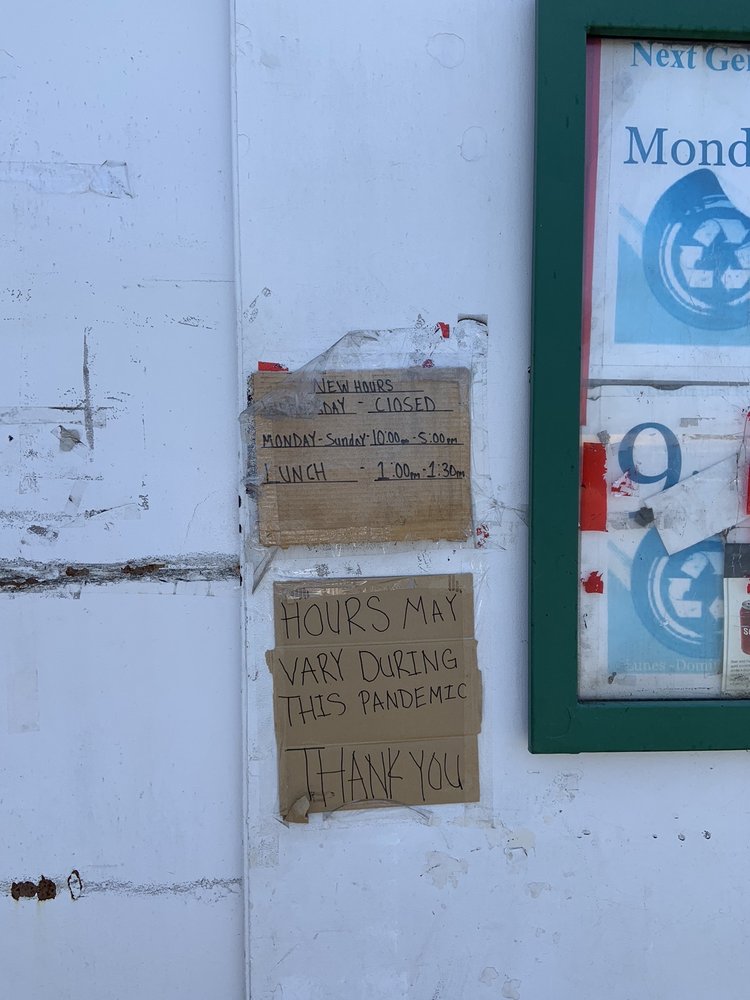 NEW HOURS
DAY - CLOSED
MONDAY - Sunday - 10:00am - 5:00pm
LUNCH - 1:00pm - 1:30pm
HOURS MAY
VARY DURING
THIS PANDEMIC
THANK YOU
Next Ge
Mond
9
Lunes - Domi